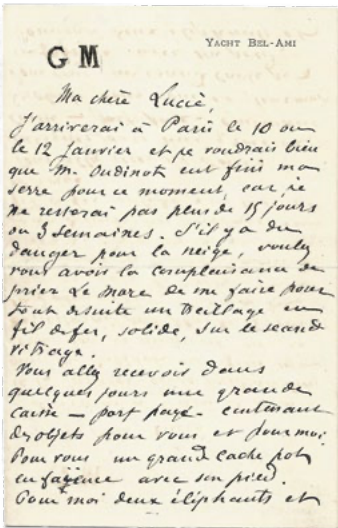 YACHT BEL-AMI
G M
Ma chère Lucie,
J'arriverai à Paris le 10 ou
le 12 Janvier et je voudrais bien
que M. Oudinot eut fini ma
serre pour ce moment, car je
ne resterai pas plus de 15 jours
ou 3 semaines. S'il y a du
danger pour la neige, voulez
vous avoir la complaisance de
prier Le Mare de me faire pour
tout de suite un treillage en
fil de fer, solide, sur le second
vitrage.
Vous allez recevoir dans
quelques jours une grande
caisse - port payé - contenant
des objets pour vous et pour moi.
Pour vous un grand cache pot
en faïence avec son pied.
Pour moi deux éléphants et